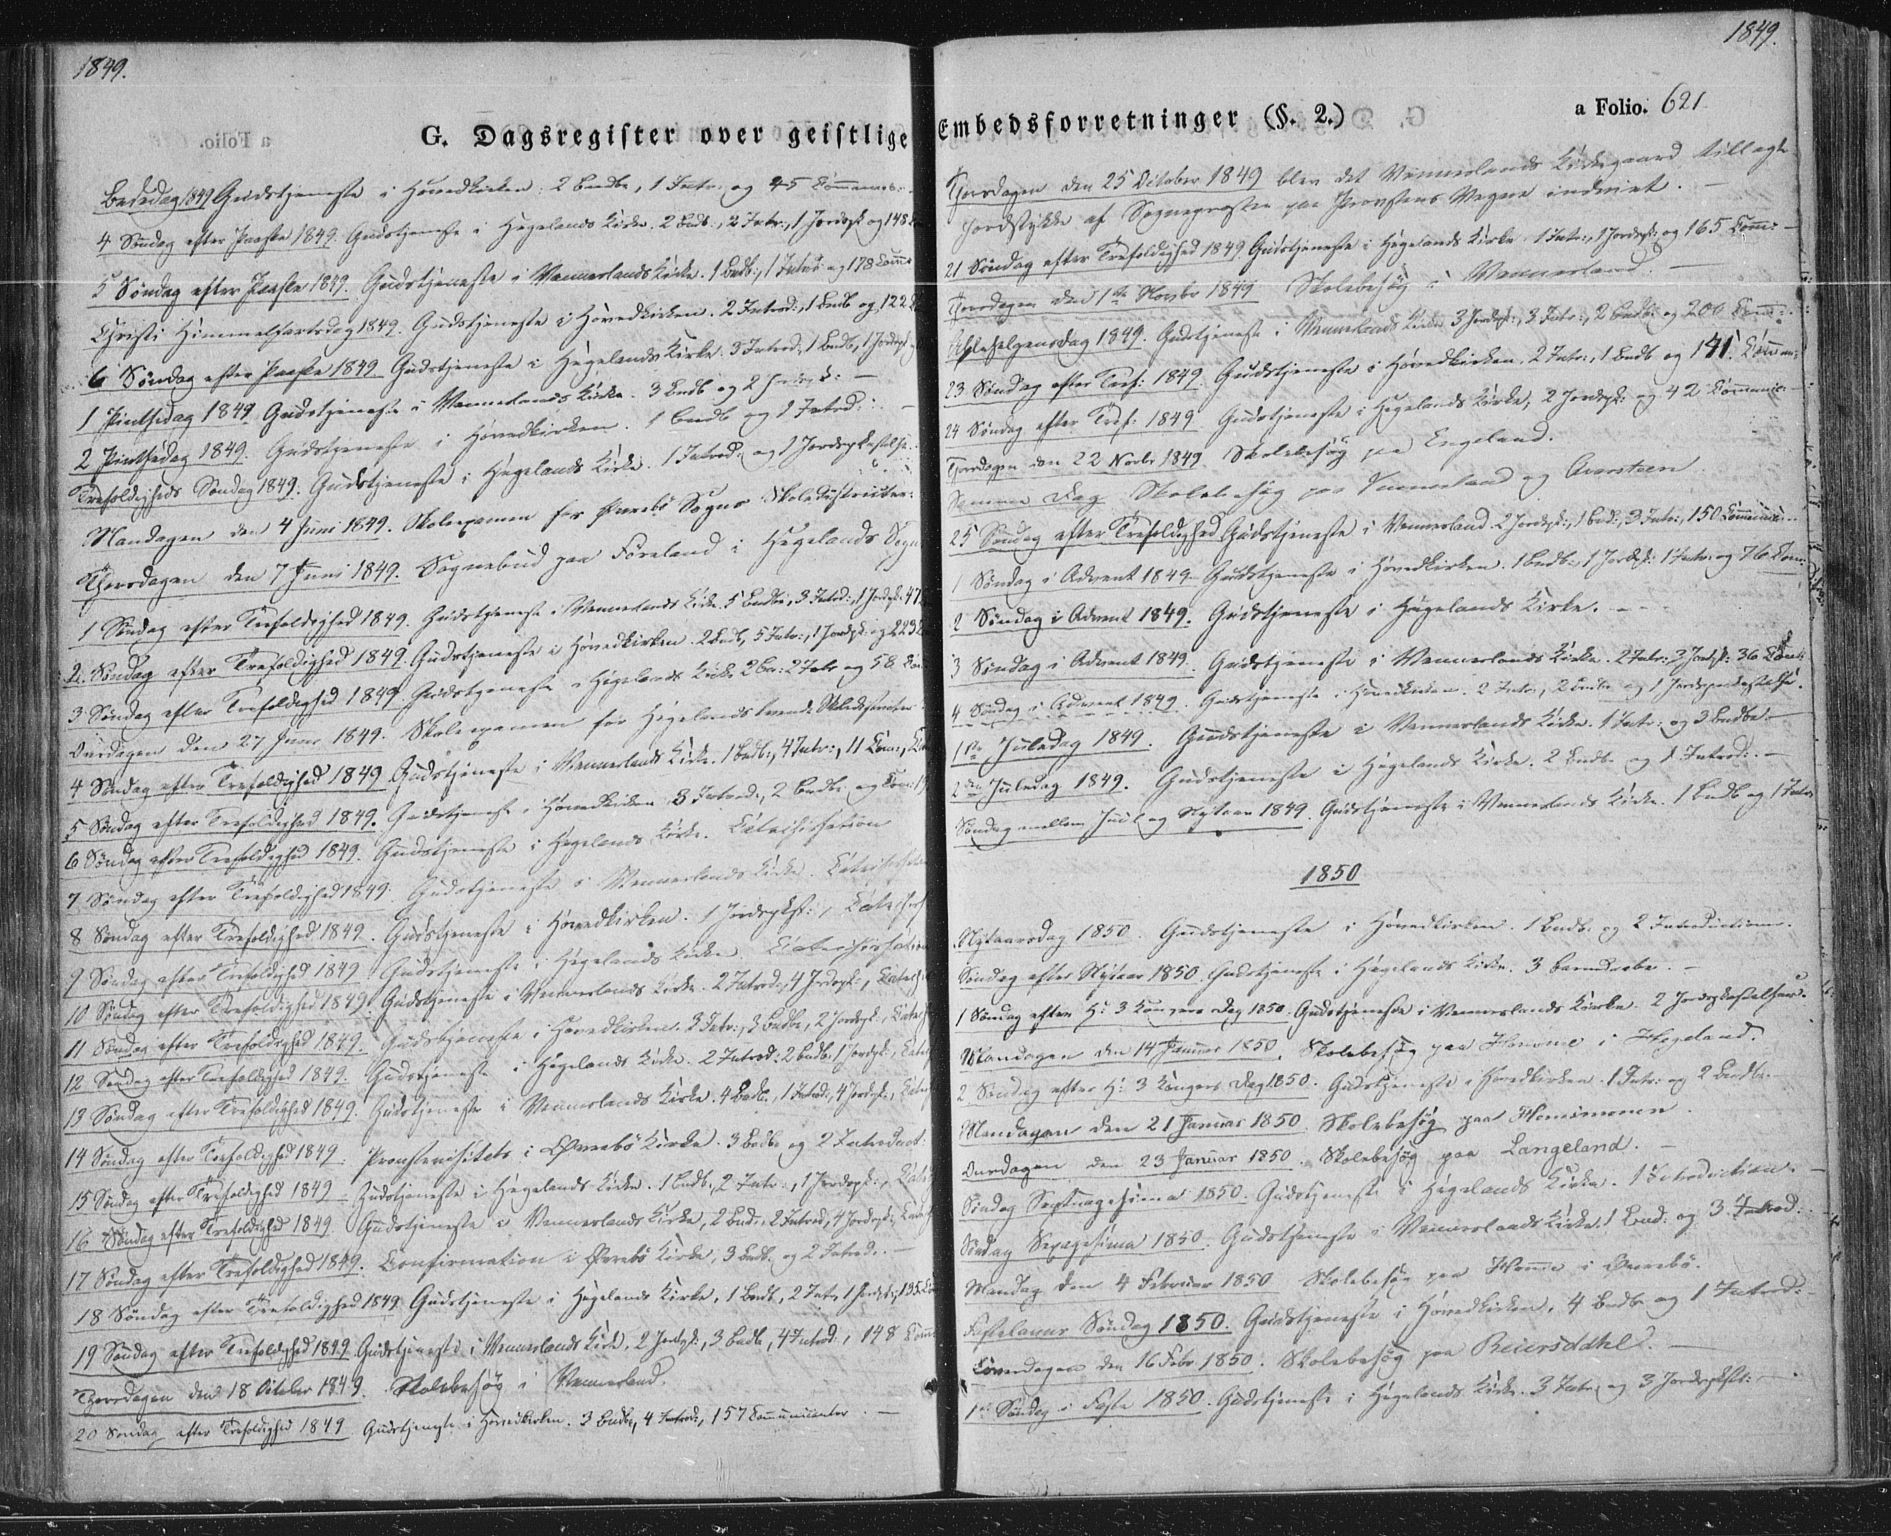 1849.
G. Dagsregister over geistlige
Bededag 1849 Gudstjeneste i Hovedkirken. 2 Barnd., 1 Intr. og 45 Communic.
4 Søndag efter Paaske 1849. Gudstjeneste i Hægelands Kirke. 2 Barnd., 2 Intr., 1 Jordspk. og 148
5 Søndag efter Paaske 1849. Gudstjeneste i Vennerlands Kirke. 1 Barnd., 1 Introd. og 178 Comm.
Christi Himmelfartsdag 1849. Gudstjeneste i Hovedkirken. 2 Introd., 1 Barnd. og 122
6 Søndag efter Paaske 1849. Gudstjeneste i Hægelands Kirke. 3 Introd., 1 Barnd., 1 Jordspk.
1 Pintsedag 1849. Gudstjeneste i Vennerlands Kirke. 3 Barnd. og 2 Introd. –
2 Pintsedag 1849. Gudstjeneste i Hovedkirken. 1 Barnd. og 1 Introd. –
Trefoldigheds Søndag 1849. Gudstjeneste i Hægelands Kirke. 1 Introd. og 1 Jordspkastelse.
Mandagen den 4 Juni 1849. Skoleexamen for Øvrebø Sogns Skoledistricter.
Thorsdagen den 7 Juni 1849. Sognebud paa Føreland i Hægelands Sogn
1 Søndag efter Trefoldighed 1849. Gudstjeneste i Vennerlands Kirke. 5 Barnd., 3 Introd., 1 Jordspk. 47
2. Søndag efter Trefoldighed 1849. Gudstjeneste i Hovedkirken. 2 Barnd., 5 Intr., 1 Jordspk. og 223
3 Søndag efter Trefoldighed 1849. Gudstjeneste i Hægelands Kirke. 2 Bar. 2 Intr. og 58 Com.
Onsdagen den 27 Juni 1849. Skoleexamen for Hægelands Skoledistricter
4 Søndag efter Trefoldighed 1849. Gudstjeneste i Vennerlands Kirke. 1 Barnd., 4 Intr., 11 Com.,
5 Søndag efter Trefoldighed 1849. Gudstjeneste i Hovedkirken. 3 Introd., 2 Barnd. og Com.
6 Søndag efter Trefoldighed 1849. Gudstjeneste i Hægelands Kirke. Catechisation
7 Søndag efter Trefoldighed 1849. Gudstjeneste i Vennerlands Kirke. Catechisation
8 Søndag efter Trefoldighed 1849. Gudstjeneste i Hovedkirken. 1 Jordspkst., Catechis
9 Søndag efter Trefoldighed 1849. Gudstjeneste i Hægelands Kirke. Catechisation
10 Søndag efter Trefoldighed 1849. Gudstjeneste i Vennerlands Kirke. 2 Introd., 4 Jordspk., Catech
11 Søndag efter Trefoldighed 1849. Gudstjeneste i Hovedkirken. 3 Intr., 3 Barnd., 2 Jordspk., Catech
12 Søndag efter Trefoldighed 1849. Gudstjeneste i Hægelands Kirke. 2 Introd. 2 Barnd. 1 Jordspk., Catech
13 Søndag efter Trefoldighed 1849. Gudstjeneste i Vennerlands Kirke. 4 Barnd., 1 Introd., 4 Jordspk., Catech
14 Søndag efter Trefoldighed 1849. Provstevisitats i Øvrebø Kirke. 3 Barnd. og 2 Introduct.
15 Søndag efter Trefoldighed 1849. Gudstjeneste i Hægelands Kirke. 1 Barnd., 2 Intr., 1 Jordspk., Catech
16 Søndag efter Trefoldighed 1849. Gudstjeneste i Vennerlands Kirke, 2 Barnd., 2 Introd., 4 Jordspk., Catech
17 Søndag efter Trefoldighed 1849. Confirmation i Øvrebø Kirke, 3 Barnd. og 2 Introd. –
18 Søndag efter Trefoldighed 1849 Gudstjeneste i Hægelands Kirke, 1 Barnd., 2 Intr. 1 Jordspk., 135 Co
19 Søndag efter Trefoldighed 1849 Gudstjeneste i Vennerlands Kirke, 2 Jordspk., 3 Barnd., 4 Introd., 148 Comm
Thorsdagen den 18 October 1849. Skolebesøg i Vennerland.
20 Søndag efter Trefoldighed 1849 Gudstjeneste i Hovedkirken. 3 Barnd., 4 Introd., 157 Communicanter. –
1849.
Embedsforretninger (§. 2.)
a Folio. 621
Thorsdagen den 25 October 1849 blev det Vennerlands Kirkegaard tillagte
Jordstykke af Sognepresten paa Provstens Vegne indviet. –
21 Søndag efter Trefoldighed 1849. Gudstjeneste i Hægelands Kirke. 1 Intr., 1 Jordspk. og 165 Comm. –
Thorsdagen den 1ste Novbr 1849 Skolebesøg i Vennerland. –
Allehelgensdag 1849. Gudstjeneste i Vennerlands Kirke. 3 Jordspk., 3 Intr., 2 Barnd. og 200 Comm.
23 Søndag efter Tref. 1849. Gudstjeneste i Hovedkirken. 2 Intr., 1 Barnd. og 141. Comm.
24 Søndag efter Tref. 1849 Gudstjeneste i Hægelands Kirke, 2 Jordspk. og 42 Communic. –
Thorsdagen den 22 Novbr 1849 Skolebesøg paa Engeland.
Samme Dag Skolebesøg paa Vennerland og
25 Søndag efter Trefoldighed Gudstjeneste i Vennerland. 2 Jordspk., 1 Barnd., 3 Intr., 150 Communic.
1 Søndag i Advent 1849. Gudstjeneste i Hovedkirken. 1 Barnd., 1 Jordspk. 1 Intr. og 76 Com.
2 Søndag i Advent 1849. Gudstjeneste i Hægelands Kirke. – – –
3 Søndag i Advent 1849. Gudstjeneste i Vennerlands Kirke. 2 Intr. 3 Jordspk. 36 Com.
4 Søndag i Advent 1849. Gudstjeneste i Hovedkirken. 2 Intr., 2 Barnd. og 1 Jordspaakastelse.
1ste Juledag 1849. Gudstjeneste i Vennerlands Kirke. 1 Intr. og 3 Barnd. –
2den Juledag 1849. Gudstjeneste i Hægelands Kirke. 2 Barnd. og 1 Introd. –
Søndag mellem Juul og Nytaar 1849. Gudstjeneste i Vennerlands Kirke. 1 Barnd. og 1 Intr.
1850
Nytaarsdag 1850. Gudstjeneste i Hovedkirken. 1 Barnd. og 2 Introductioner.
Søndag efter Nytaar 1850. Gudstjeneste i Hægelands Kirke. 3 Barnedaabe. –
1 Søndag efter H: 3 Kongers Dag 1850. Gudstjeneste i Vennerslands Kirke. 2 Jordspkastelser.
Mandagen den 14 Januar 1850. Skolebesøg paa Homme i Hægeland.
2 Søndag efter H: 3 Kongers Dag 1850. Gudstjeneste i Hovedkirken. 1 Intr. og 2 Barnd. –
Mandagen den 21 Januar 1850. Skolebesøg paa
Onsdagen den 23 Januar 1850. Skolebesøg paa Langeland. –
Søndag Septuagesima 1850. Gudstjeneste i Hægelands Kirke. 1 Introduction. –
Søndag Sexagesima 1850. Gudstjeneste i Vennerslands Kirke. 1 Barnd. og 3 Introd. –
Mandag den 4 Februar 1850 Skolebesøg paa Homme i Øvrebø.
Fastelavns Søndag 1850. Gudstjeneste i Hovedkirken. 4 Barnd. og 1 Introd. –
Løverdagen den 16 Febr. 1850. Skolebesøg paa Reiersdahl. –
1ste Søndag i Faste 1850. Gudstjeneste i Hægelands Kirke. 3 Intr. og 3 Jordspkst. –